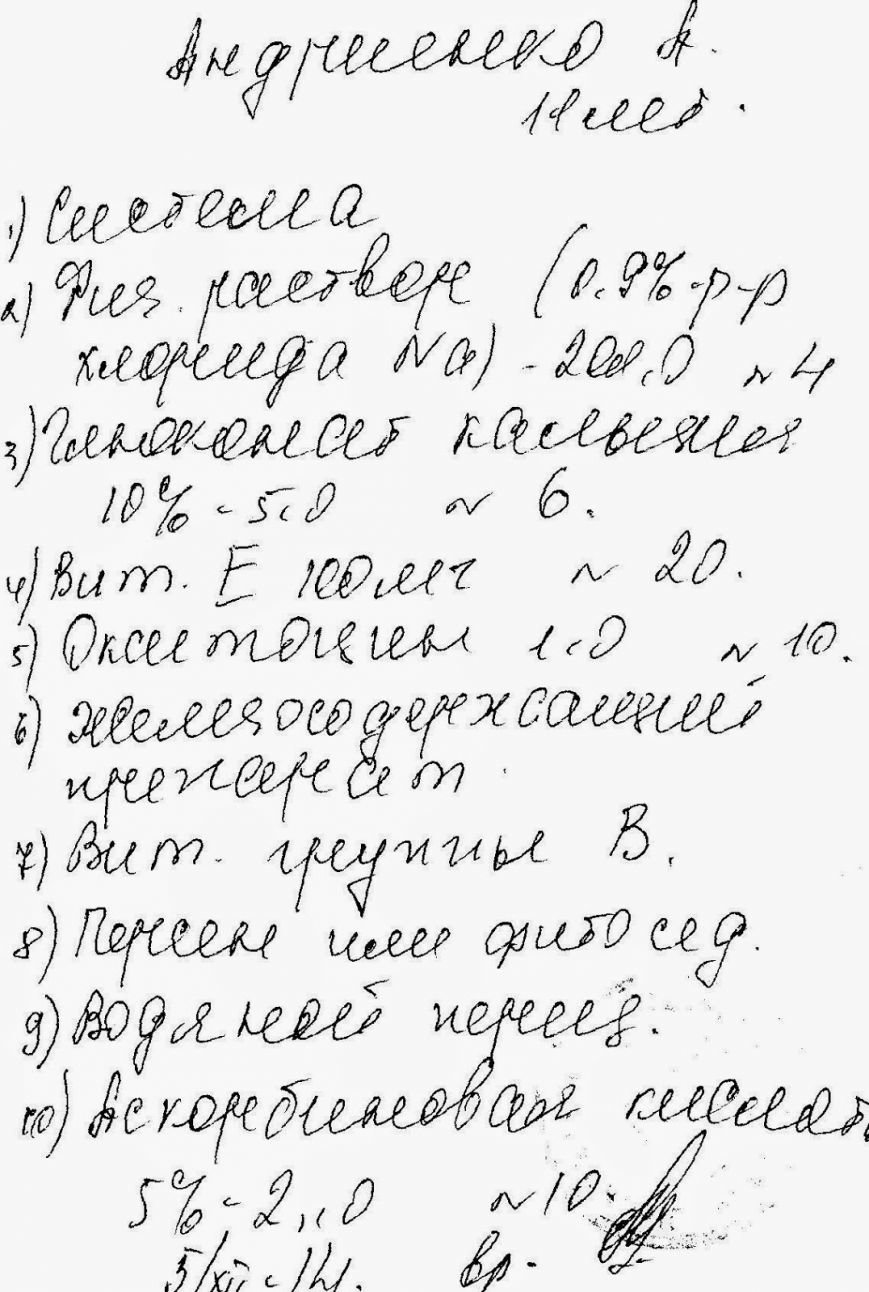 Андриенко А.
лет.
1) Система
2) Физ. раствор (0.9%-р-р
хлорида Na) - 200,0 N 4
3) Глюконат кальция
10% - 5,0 N 6.
4) Вит. Е 100мг N 20.
5) Окситоцин 1,0 N 10.
6) Железосодержащий
препарат.
7) Вит. группы В.
8) Персен или фитосед.
9) Водяной перец.
10) Аскорбиновая кислота
5% - 2,0 N 10.
5/XII-14. вр.